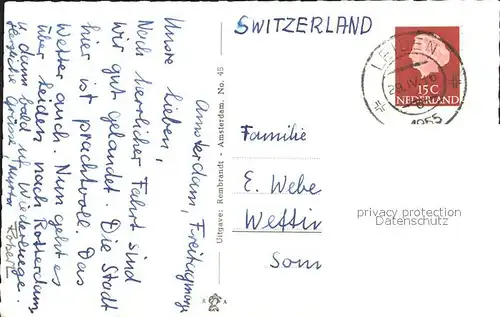 Amsterdam, Freitagmorgen
Unsre Lieben,
Nach herrlicher Fahrt sind
wir gut gelandet. Die Stadt
hier ist prachtvoll. Das
Wetter auch. Nun geht es
über Leiden nach Rotterdam
u. dann bald uf Wiederluege.
Herzliche Grüsse
Robert
Uitgave: Rembrandt - Amsterdam. No. 45
SWITZERLAND
LEIDEN
1955
15 C
NEDERLAND
Familie
E. Webe
Wettin
Som
privacy protection
Datenschutz